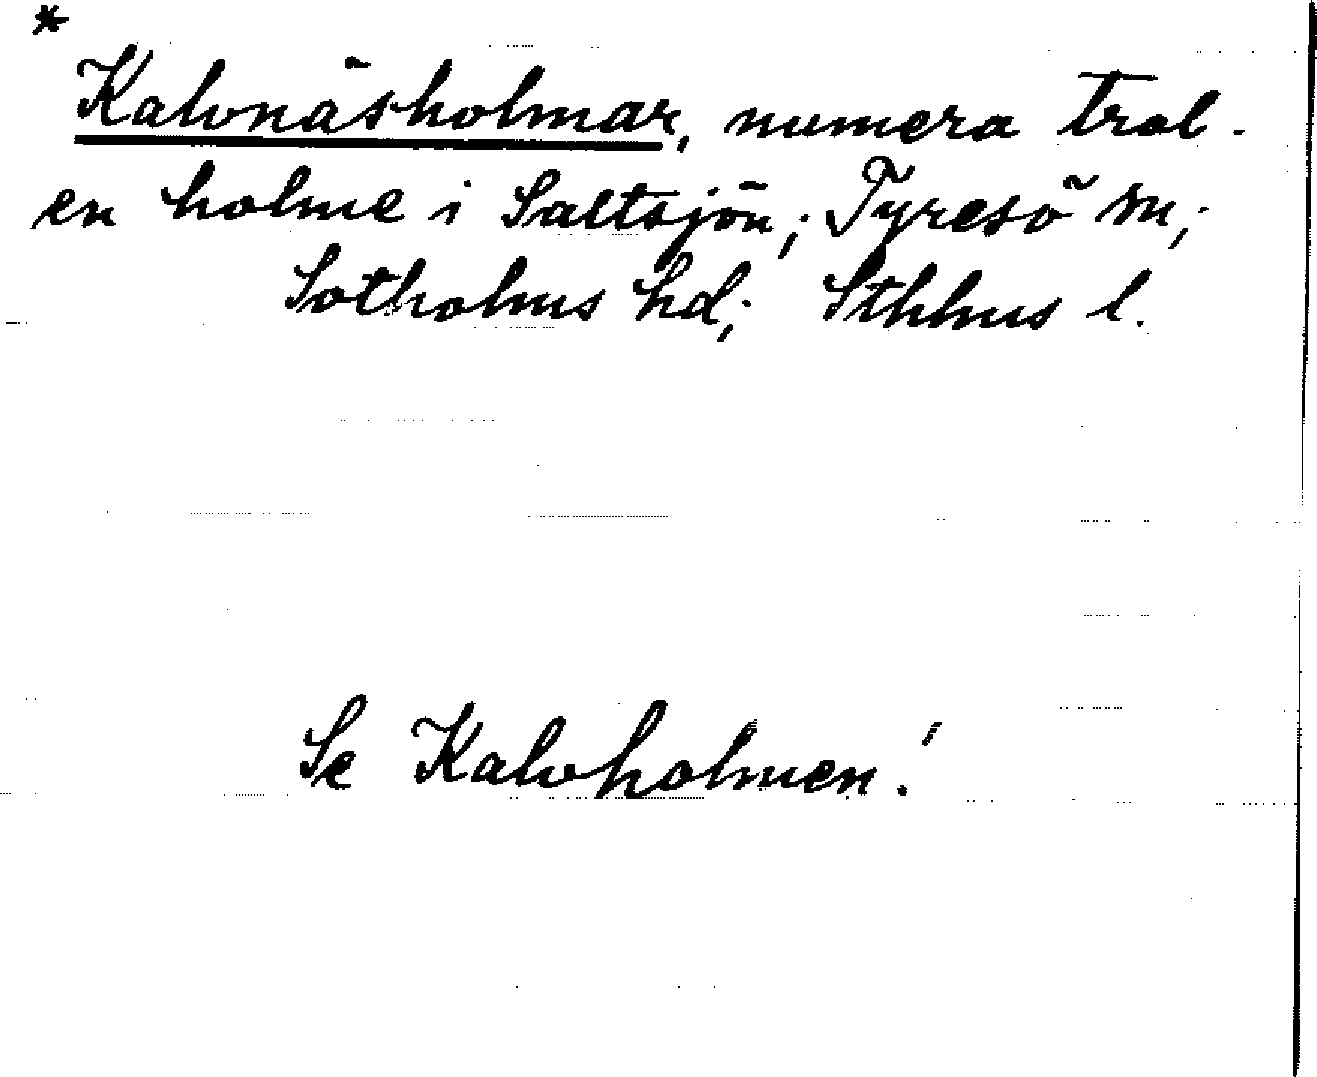 *
Kalvnäsholmar, numera trol.
en holme i Saltsjön; Tyresö sn;
Sotholms hd; Sthlms l.
Se Kalvholmen!